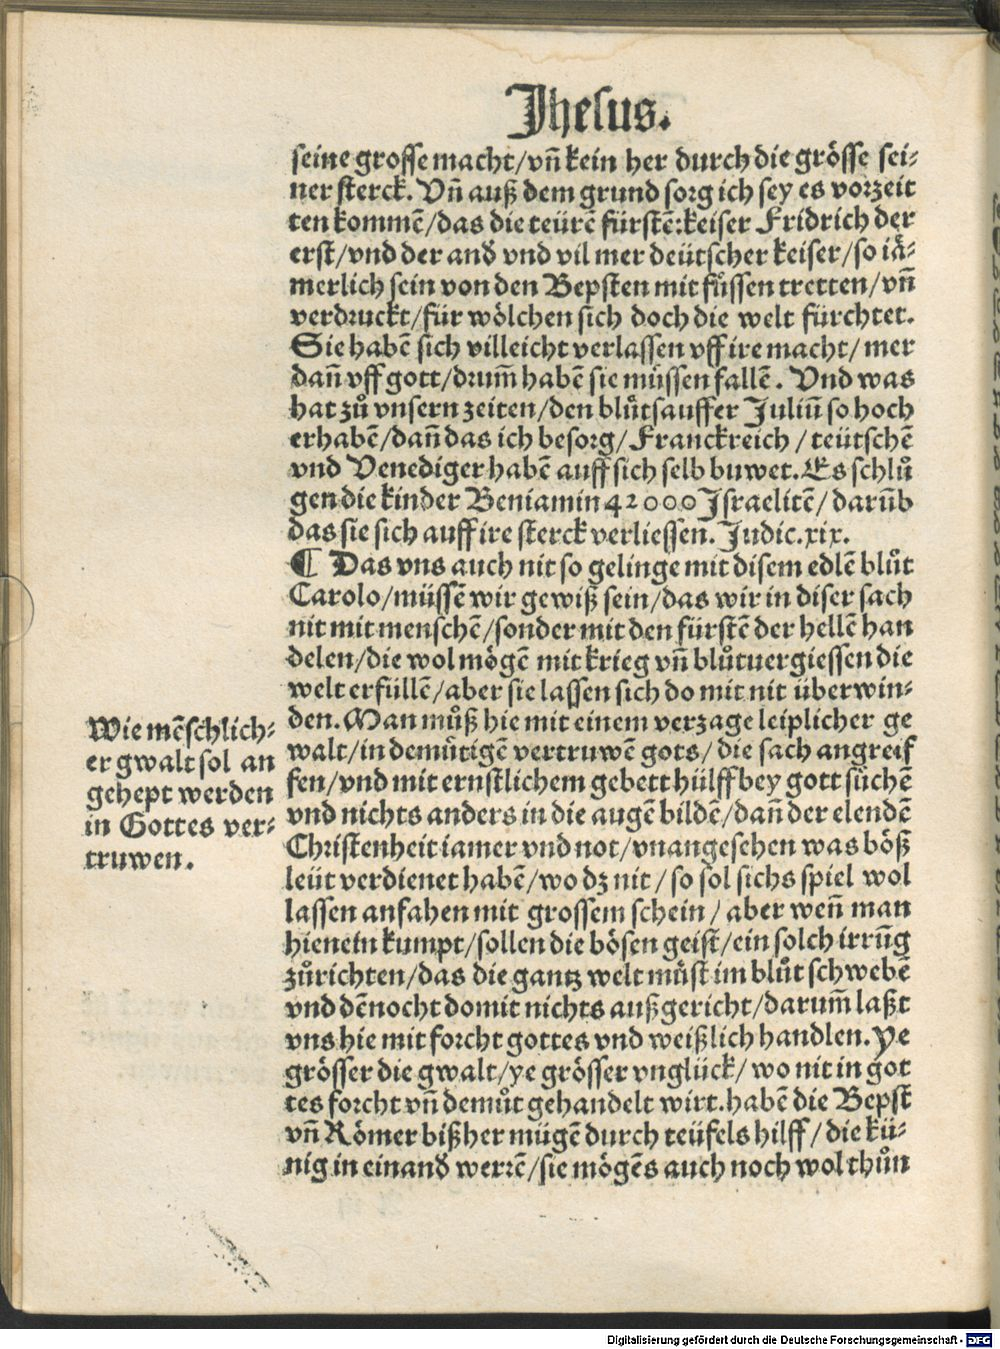 Jhesus.
seine grosse macht/vn̄ kein her durch die grösse sei-
ner sterck. Vn̄ auß dem grund sorg ich sey es vorzeit
ten kommē/das die teürē fürstē:keiser Fridrich der
erst/vnd der and vnd vil mer deütscher keiser/so iä-
merlich sein von den Bepsten mit fu̇ssen tretten/vn̄
verdruckt/für wölchen sich doch die welt fürchtet.
Sie habē sich villeicht verlassen vff ire macht/ mer
dan̄ vff gott/drum̄ habē sie müssen fallē. Vnd was
hat zů vnsern zeiten/den blůtsauffer Juliū so hoch
erhabē/dan̄ das ich besorg/ Franckreich / teütschē
vnd Venediger habē auff sich selb buwet. Es schlů
gen die kinder Beniamin 42000 Jsraelitē/ darūb
das sie sich auff ire sterck verliessen. Judic.xix.
¶ Das vns auch nit so gelinge mit disem edlē blůt
Carolo/müssē wir gewiß sein/das wir in diser sach
nit mit menschē/sonder mit den fürstē der hellē han
delen/die wol mögē mit krieg vn̄ blůtuergiessen die
welt erfüllē/aber sie lassen sich do mit nit überwin-
den. Man můß hie mit einem verzage leiplicher ge
walt/in demütigē vertruwē gots/ die sach angreif
fen/vnd mit ernstlichem gebett hülff bey gott süchē
vnd nichts anders in die augē bildē/dan̄ der elendē
Christenheit iamer vnd not/vnangesehen was böß
leüt verdienet habē/wo dz nit / so sol sichs spiel wol
lassen anfahen mit grossem schein / aber wen̄ man
hienein kumpt/sollen die bösen geist/ein solch irrūg
zůrichten/das die gantz welt müst im blůt schwebē
vnd dēnocht domit nichts außgericht/darum̄ laßt
vns hie mit forcht gottes vnd weißlich handlen. Ye
grösser die gwalt/ye grösser vnglück/ wo nit in got
tes forcht vn̄ demůt gehandelt wirt. habē die Bepst
vn̄ Römer bißher mügē durch teüfels hilff / die kü-
nig in einand werrē/sie mögēs auch noch wol thůn
Wie mēschlich-
er gwalt sol an
gehept werden
in Gottes ver-
truwen.
Digitalisierung gefördert durch die Deutsche Forschungsgemeinschaft - DFG